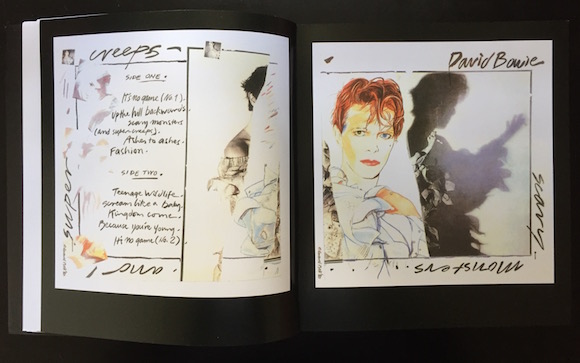 creeps
SIDE ONE.
It's no game (No. 1).
up the hill backwards
scary monsters
(and supercreeps).
Ashes to ashes.
Fashion.
SIDE TWO.
Teenage Wildlife.
scream like a Baby.
Kingdom come.
Because you're young.
It's no game (No. 2)
super
and
David Bowie
scary
monsters